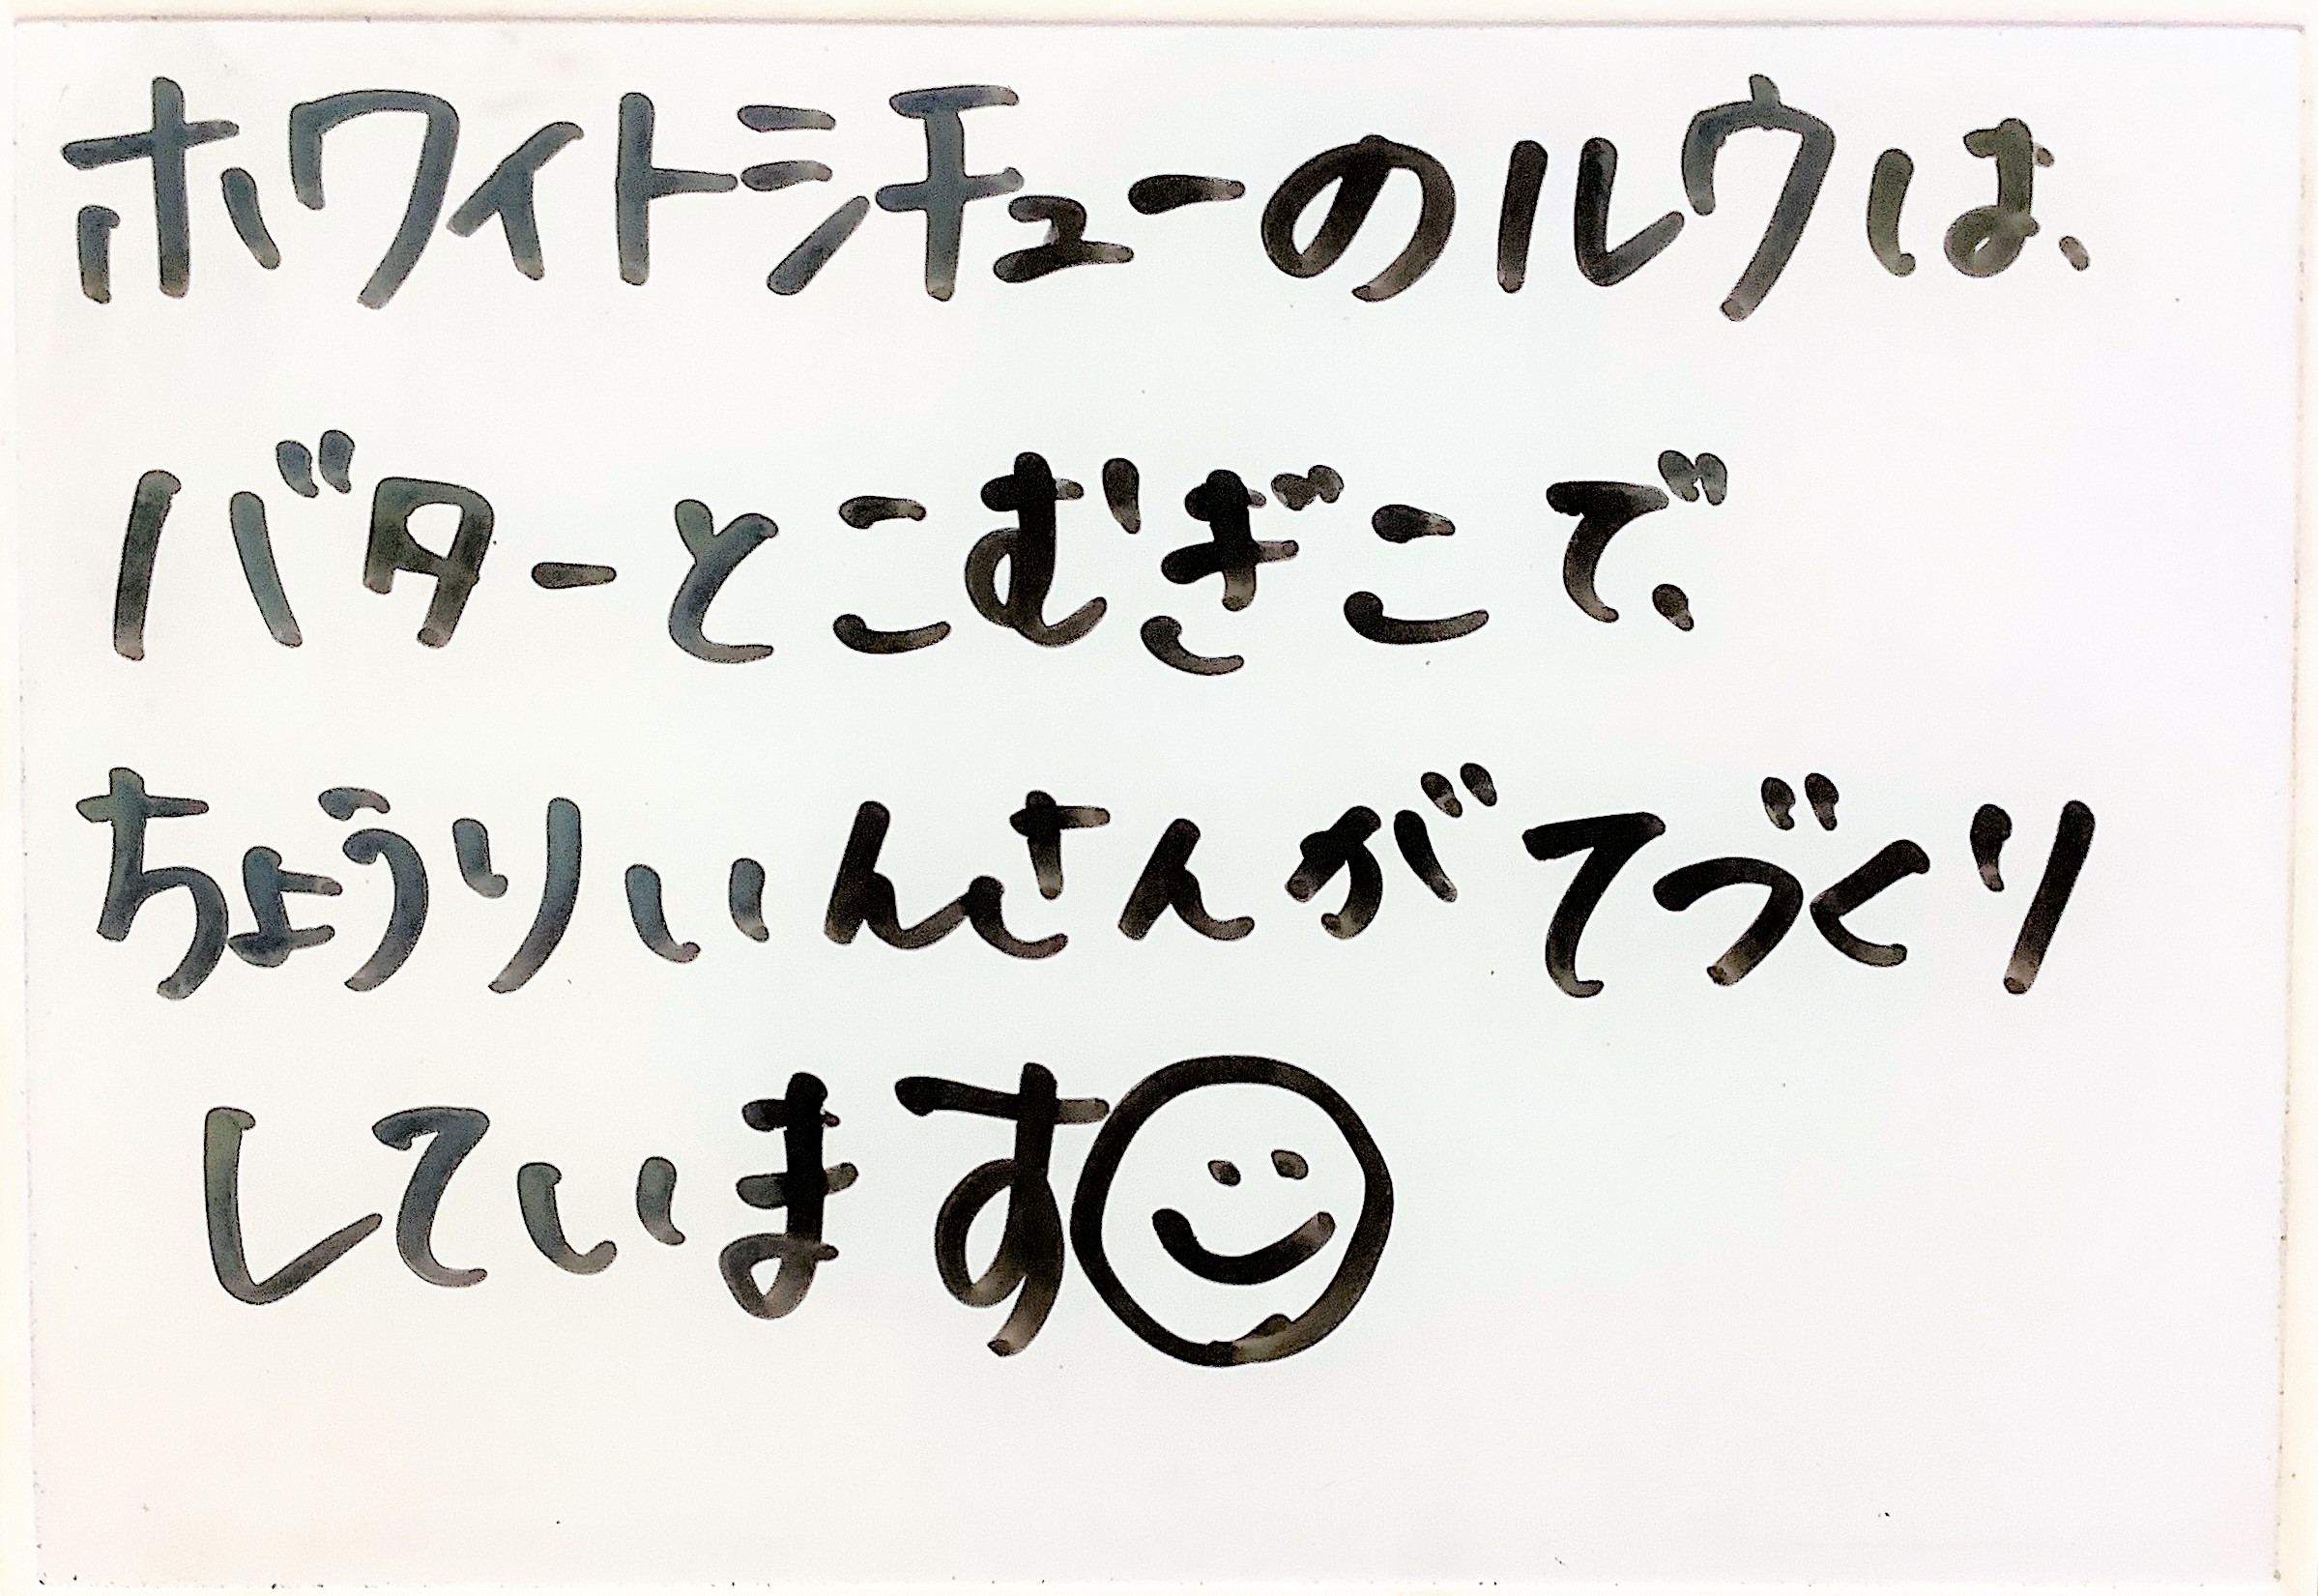 ホワイトシチューのルウは、
バターとこむぎこで、
ちょうりいんさんがてづくり
しています